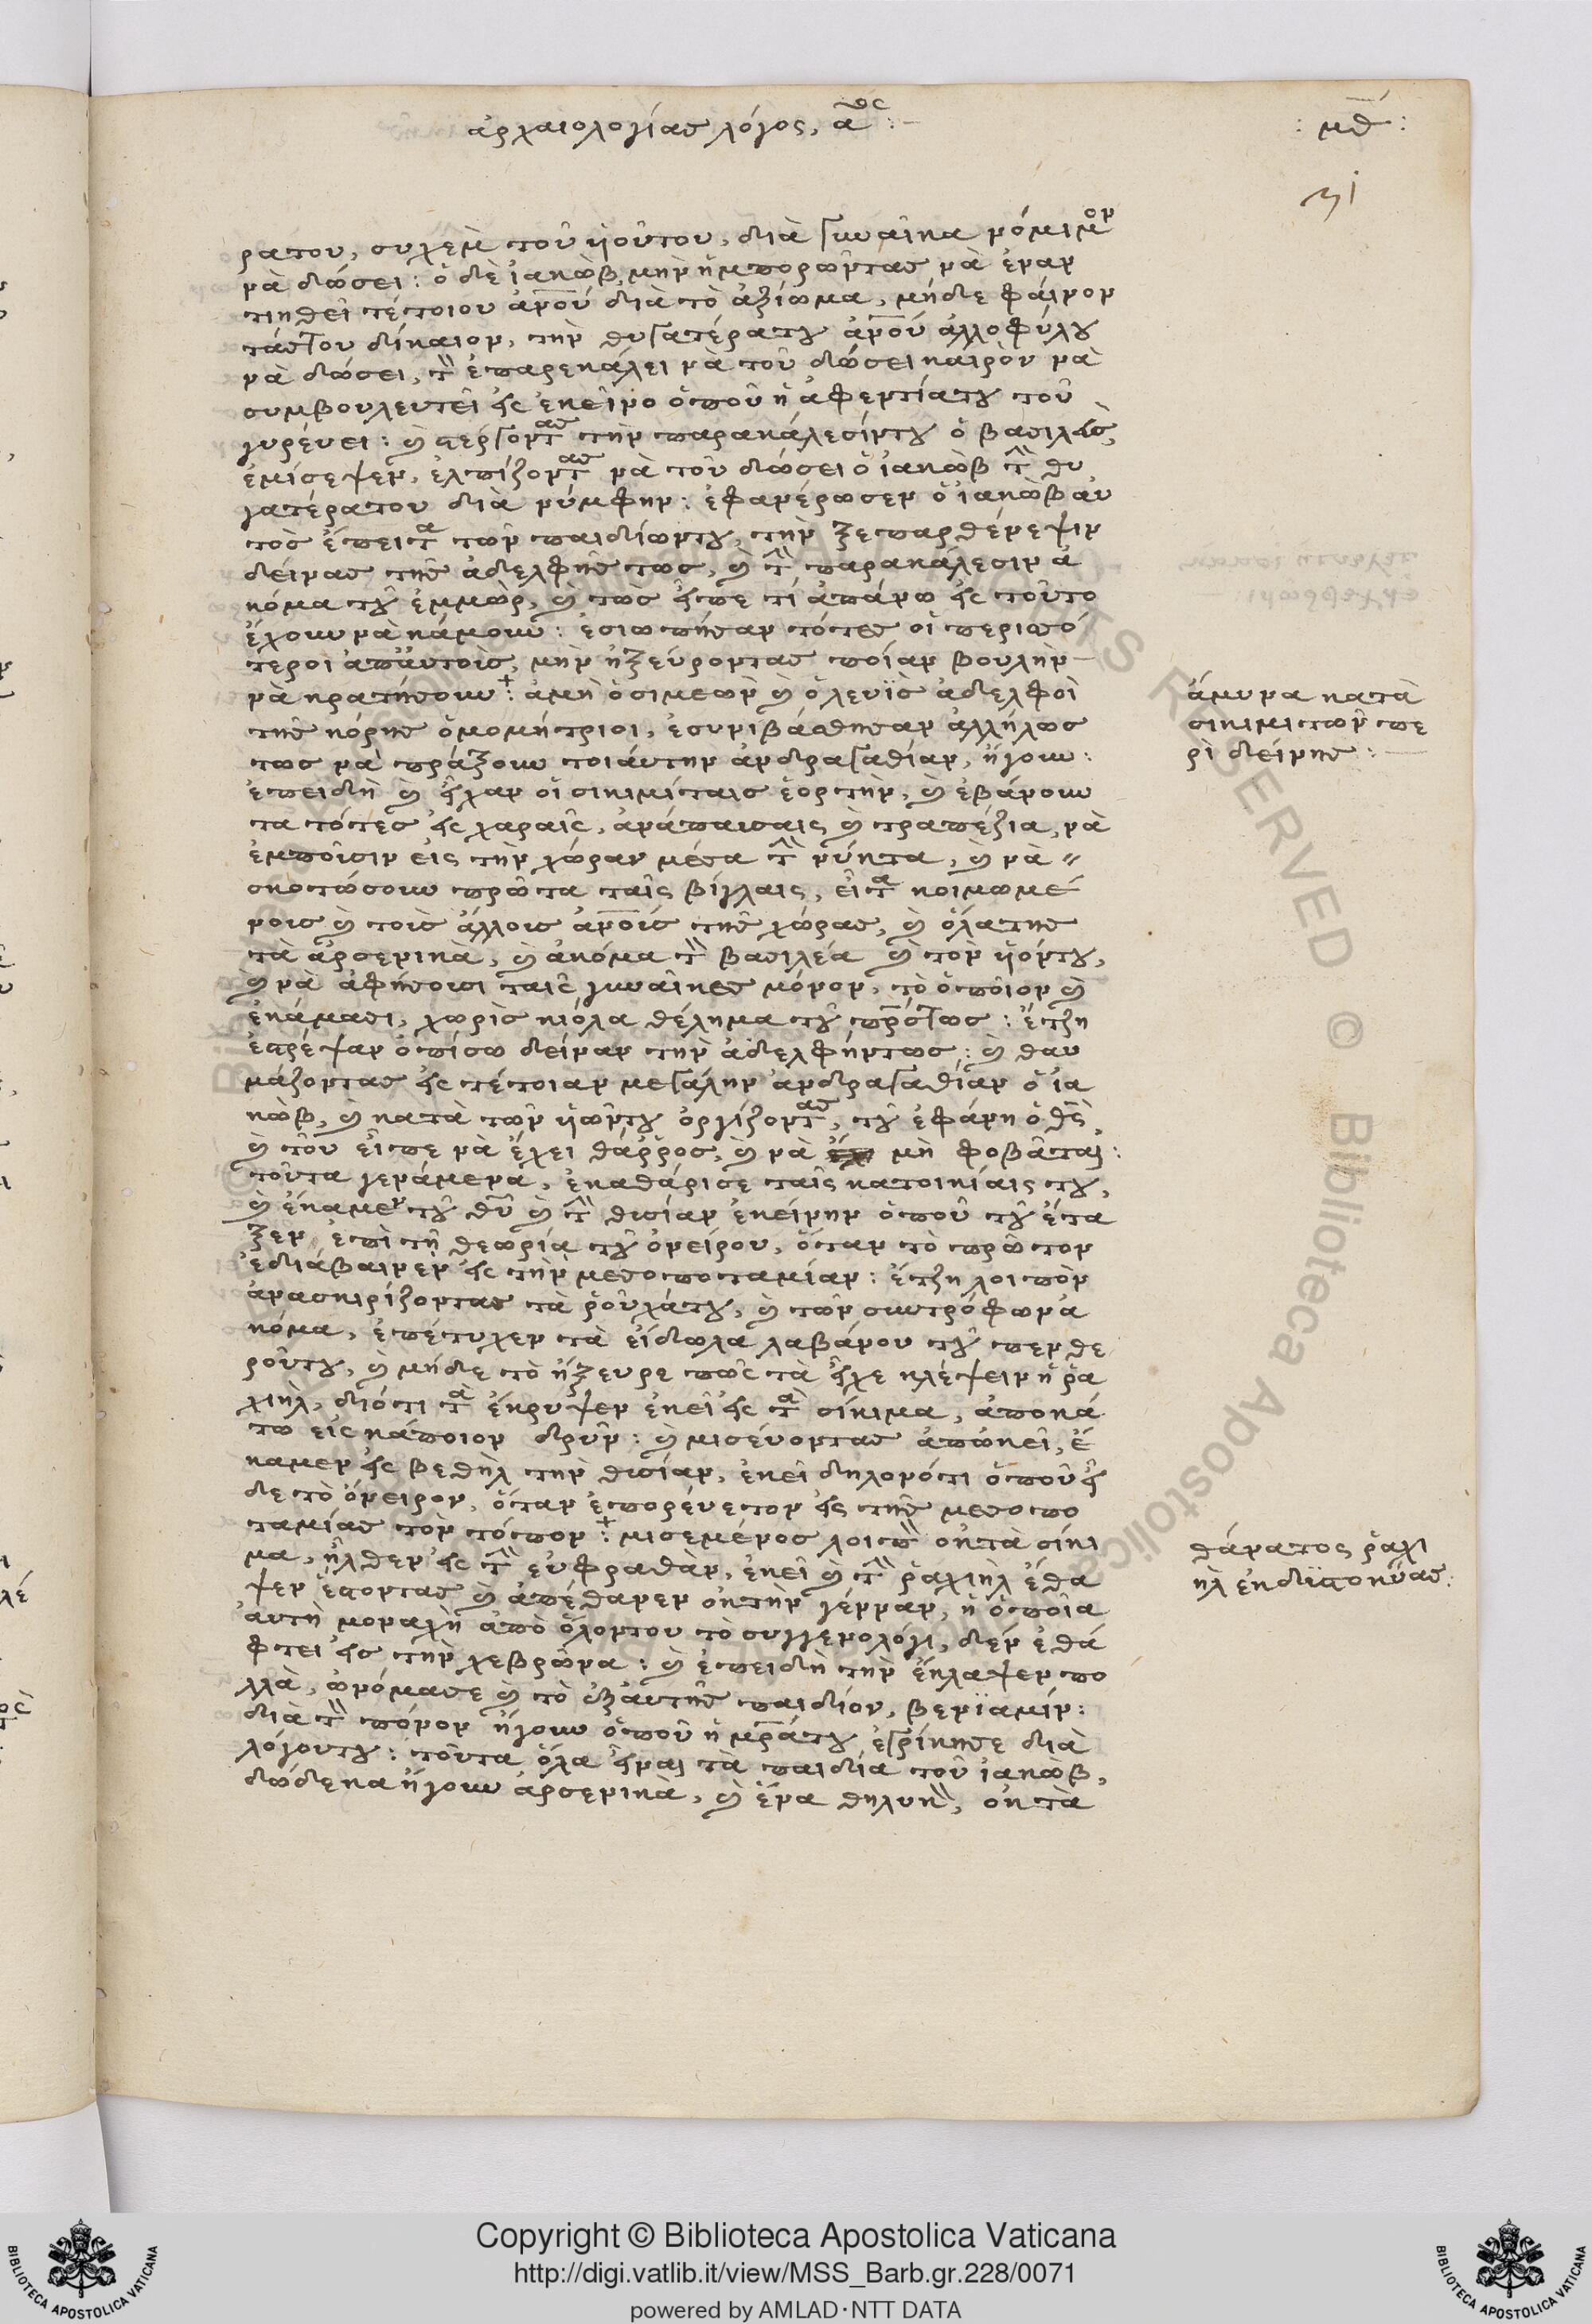 ἀρχαιολογίας λόγος, α ος :-
: μθ :
31
νατου, συχεμ τοῦ ἡοῦτου, διὰ γυναῖκα νόμιμον
νὰ δώσει : ὁ δὲ ἰακὼβ μὴν ἠμπορῶντας νὰ ἐναν
τιηθεῖ τέτοιου ἀνοῦ διὰ τὸ ἀξίωμα, μήδε φαίνον
τάςτου δίκαιον, τὴν θυγατέρατȣ ἀνοῦ ἀλλοφύλȣ
νὰ δώσει, τ ἐπαρεκάλει νὰ τοῦ δώσει καιρὸν νὰ
συμβουλευτεῖ εἰς ἐκεῖνο ὁποῦ ἡ ἀφεντίατȣ τοῦ
γυρεύει : ϗ στέργοντας τὴν παρακάλεσίντȣ ὁ βασιλεὺς,
ἐμίσεψεν, ἐλπίζοντας νὰ τοῦ δώσει ὁ ἰακὼβ τ θυ
γατέρατου διὰ νύμφην : ἐφανέρωσεν ὁ ἰακὼβ αὐ
τὸς ἔπειτα τῶν παιδίωντȣ, τὴν ξεπαρθένεψιν
δείνας τῆς ἀδελφῆς τως, ϗ τ παρακάλεσιν ἀ
κόμα τȣ ἐμμὼρ, ϗ τως εἶπε τι ἀπάνω εἰς τοῦτο
ἔχουν νὰ κάμουν : ἐσιωπῆσαν τότες οἱ περισσό
τεροι ἀπαὐτοὶς, μὴν ἠξεύροντας ποίαν βουλὴν
νὰ κρατήσουν : ἀμὴ ὁ σιμεὼν ϗ ὁ λευῒς ἀδελφοὶ
τῆς κόρης ὁμομήτριοι, ἐσυνιβάσθησαν ἀλλήλως
τως νὰ πράξουν τοιαύτην ἀνδραγαθίαν, ἤγουν :
ἐπειδὴ ϗ εἶχαν οἱ σικιμίταις ἑορτὴν, ϗ ἐβάνουν
τα τότες εἰς χαραῖς, ἀνάπαυσαις ϗ τραπέζια, νὰ
ἐμποῦσιν εἰς τὴν χώραν μέσα τ νύκτα, ϗ νὰ
σκοτώσουν πρῶτα ταῖς βίγλαις, εἶτα κοιμωμέ
νοις ϗ τοὶς ἄλλοις ἀνοὶς τῆς χώρας, ϗ ὅλατης
τὰ ἀρσενικὰ, ϗ ἀκόμα τ βασιλέα ϗ τὸν ἡόντȣ,
ϗ νὰ ἀφήσουσι ταῖς γυναῖκες μόνον, τὸ ὁποῖον ϗ
ἐκάμασι, χωρὶς κιόλα θέλημα τȣ πρςτως : ἔτζη
ἐστρέψαν ὀπίσω δείναν τὴν ἀδελφήντως : ϗ θαυ
μάζοντας εἰς τέτοιαν μεγάλην ἀνδραγαθίαν ὁ ἰα
κὼβ, ϗ κατὰ τῶν ἡῶντȣ ὀργίζοντας, τȣ ἐφάνη ὁ θς,
ϗ τοῦ εἶπε νὰ ἔχει θάῤῥος, ϗ νὰ μὴ φοβᾶται :
τοῦτα γενάμενα, ἐκαθάρισε ταῖς κατοικίαις τȣ,
ϗ ἔκαμεν τȣ θυ ϗ τ θυσίαν ἐκείνην ὁποῦ τȣ ἔτα
ξεν ἐπὶ τῇ θεωρία τȣ ὀνείρου, ὅταν τὸ πρῶτον
ἐδιάβαινεν εἰς τὴν μεσοποταμίαν : ἔτζη λοιπὸν
ἀνασκιρίζοντας τὰ ῥοῦχάτȣ, ϗ τῶν συντρόφων ἀ
κόμα, ἐπέτυχεν τὰ εἴδωλα λαβάνου τȣ πενθε
ροῦτȣ, ϗ μήδε τὸ ἤξευρε πῶς τὰ εἶχε κλέψειν ἡ ῥα
χιὴλ, διότι τὰ ἔκρυψεν ἐκεῖ εἰς τὰ σίκιμα, ἀποκά
τω εἰς κάποιον δρῦν : ϗ μισεύοντας ἀπώκεῖ, ἔ
καμεν εἰς βεθὴλ τὴν θυσίαν, ἐκεῖ δηλονότι ὁποῦ εἶ
δε τὸ ὄνειρον, ὅταν ἐπορεύετον εἰς τῆς μεσοπο
ταμίας τὸν τόπον : μισεμένος λοιπ οκτὰ σίκι
μα, ἦλθεν εἰς τ εὐφραθὰν, ἐκεῖ ϗ τ ῥαχιὴλ ἔθα
ψεν ἔστοντας ϗ ἀπέθανεν ἐκτὴν γένναν, ἡ ὁποῖα
αὐτὴ μοναχὴ ἀπὸ ὅλοντου τὸ συγγενολόγι, δὲν ἐθά
φτει εἰς τὴν χεβρῶνα : ϗ ἐπειδὴ τὴν ἔκλαψεν πο
λλὰ, ὠνόμασε ϗ τὸ ἐξαὐτῆς παιδίον, βενϊαμίν :
διὰ τ πόνον ἤγουν ὁποῦ ἡ μράτȣ ἐγρίκησε διὰ
λόγουτȣ : τοῦτα ὅλα εἶναι τὰ παιδία τοῦ ἰακὼβ,
δώδεκα ἤγουν ἀρσενικὰ, ϗ ἕνα θηλυκ, ἐκτὰ
ἄμυνα κατὰ
σικιμιτῶν πε
ρὶ δείνης :
θάνατος ῥαχι
ὴλ ἐκ δϊστοκΰας :
Copyright © Biblioteca Apostolica Vaticana
http://digi.vatlib.it/view/MSS_Barb.gr.228/0071
powered by AMLAD·NTT DATA